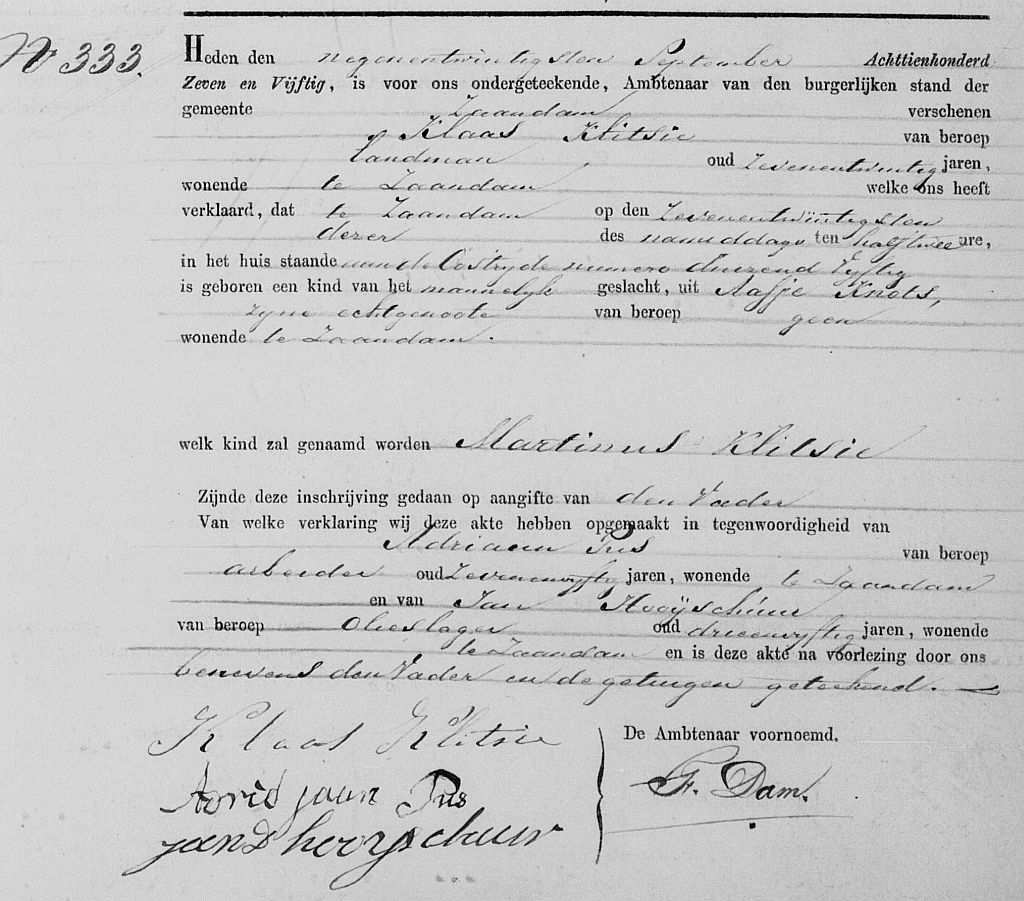 No 333.
Heden den negenentwintigsten September Achttienhonderd
Zeven en Vijftig, is voor ons ondergeteekende, Ambtenaar van den burgerlijken stand der
gemeente Zaandam verschenen
Klaas Klitsie van beroep
landman oud zevenentwintig jaren,
wonende te Zaandam welke ons heeft
verklaard, dat te Zaandam op den zevenentwintigsten
dezer des namiddags ten half twee ure,
in het huis staande aan de Oostzyde numero duizend vyftig
is geboren een kind van het mannelyk geslacht, uit Aafje Knots,
zyne echtgenoote van beroep geen
wonende te Zaandam.
welk kind zal genaamd worden Martinus Klitsie
Zijnde deze inschrijving gedaan op aangifte van den Vader
Van welke verklaring wij deze akte hebben opgemaakt in tegenwoordigheid van
Adriaan Pus van beroep
arbeider oud zevenenvyftig jaren, wonende te Zaandam
en van Jan Hooyschuur
van beroep Olieslager oud drieenvyftig jaren, wonende
te Zaandam en is deze akte na voorlezing door ons
benevens den Vader en de getuigen geteekend.
Klaas Klitsie
De Ambtenaar voornoemd.
F. Dam.
Adrid jaan Pus